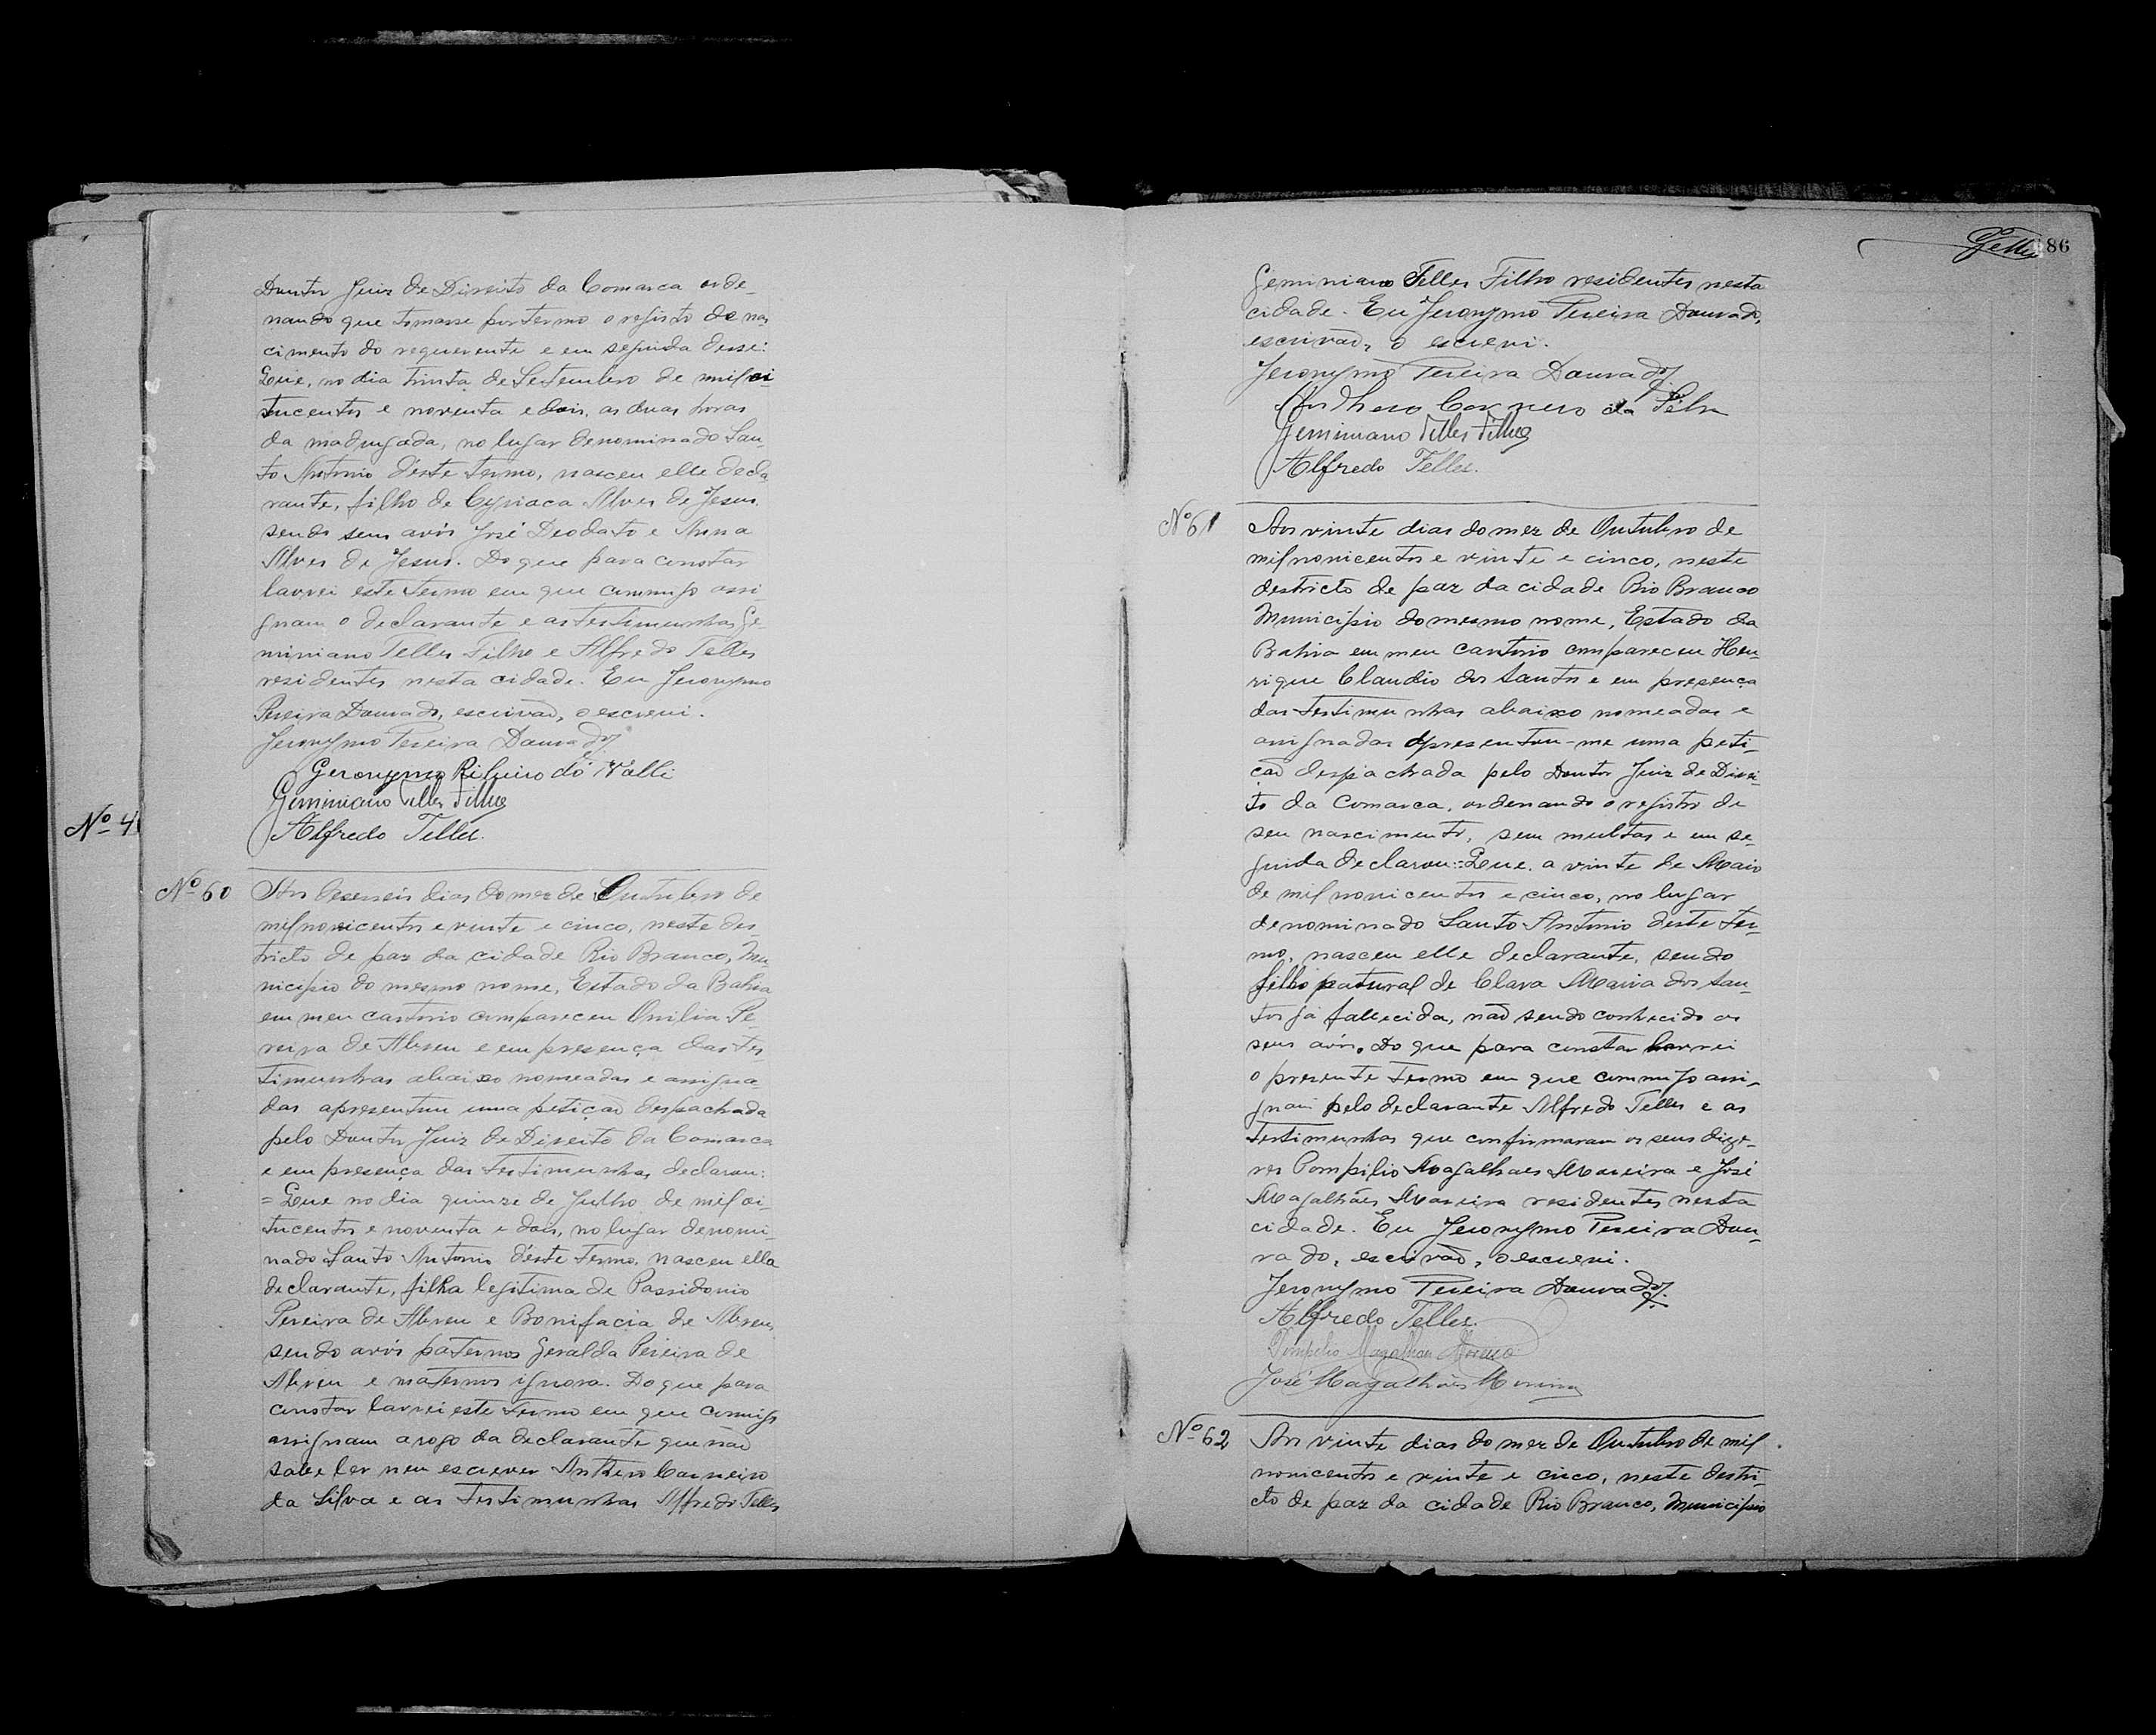 Doutor Juiz de Direito da Comarca orde-
nando que tomasse por termo o registo de nas
cimento do requerente e em seguida disse:
Que, no dia trinta de Setembro de mil oi
tucentos e noventa e dois, as duas horas
da madrugada, no lugar denominado San-
to Antonio d'este termo, nasceu elle decla
rante, filho de Cyriaca Alves de Jesus.
sendo seus avós José Deodato e Anna
Alves de Jesus. Do que para constar
lavrei este termo em que commigo assi
gnam o declarante e as testimunhas Ge-
miniano Telles Filho e Alfredo Telles
residentes nesta cidade. Eu Jeronymo
Pereira Dourado, escrivão, o escrevi.
Jeronymo Pereira Dourado
Geronymo Ribeiro do Valli
Geminiano Telles Filho
Nº 4
Alfredo Telles.
Nº 60 Aos deseseis dias do mez de Outubro de
mil novicentos e vinte e cinco, neste des-
tricto de paz da cidade Rio Branco, Mu
nicipio do mesmo nome, Estado da Bahia
em meu cartorio compareceu Onilia Pe-
reira de Abreu e em presença das tes
timunhas abaixo nomeadas e assigna-
das apresentou uma petição despachada
pelo Doutor Juiz de Direito da Comarca
e em presença das testimunhas, declarou:
= Que no dia quinze de Julho de mil oi-
tucentos e noventa e dois, no lugar denomi-
nado Santo Antonio d'este termo, nasceu ella
declarante, filha legitima de Possidonio
Pereira de Abreu e Bonifacia de Abreu,
sendo avós paternos Geralda Pereira de
Abreu e maternos ignora. Do que para
constar lavrei este termo em que comigo
assignam a rogo da declarante que não
sabe ler nem escrever Anthero Carneiro
da Silva e as testimunhas Alfredo Telles
86
Geminiano Telles Filho residentes nesta
cidade. Eu Jeronymo Pereira Dourado,
escrivão, o escrevi.
Jeronymo Pereira Dourado
Anthero Carneiro da Silva
Geminiano Telles Filho
Alfredo Telles.
Nº 61 Aos vinte dias do mez de Outubro de
mil novicentos e vinte e cinco, neste
destricto de paz da cidade Rio Branco
Municipio do mesmo nome, Estado da
Bahia em meu cartorio compareceu Hen-
rique Claudio dos Santos e em presença
das testimunhas abaixo nomeadas e
assignadas apresentou-me uma peti-
ção despachada pelo Doutor Juiz de Direi-
to da Comarca, ordenando o registro de
seu nascimento, sem multas e em se-
guida declarou:=Que, a vinte de Maio
de mil novicentos e cinco, no lugar
denominado Santo Antonio deste ter-
mo, nasceu elle declarante, sendo
filho natural de Clara Maria dos San-
tos já fallecida, não sendo conhecido os
seus avós. Do que para constar lavrei
o presente termo em que commigo assi-
gnam pelo declarante Alfredo Telles e as
testimunhas que confirmaram os seus dize-
res Pompilio Magalhaes Moreira e José
Magalhães Moreira residentes nesta
cidade. Eu Jeronymo Pereira Dou-
rado, escrivão, o escrevi.
Jeronymo Pereira Dourado
Alfredo Telles.
Pompilio Magalhaes Moreira
José Magalhães Moreira
Nº 62 Aos vinte dias do mez de Outubro de mil
novicentos e vinte e cinco, neste destri-
cto de paz da cidade Rio Branco, Municipio